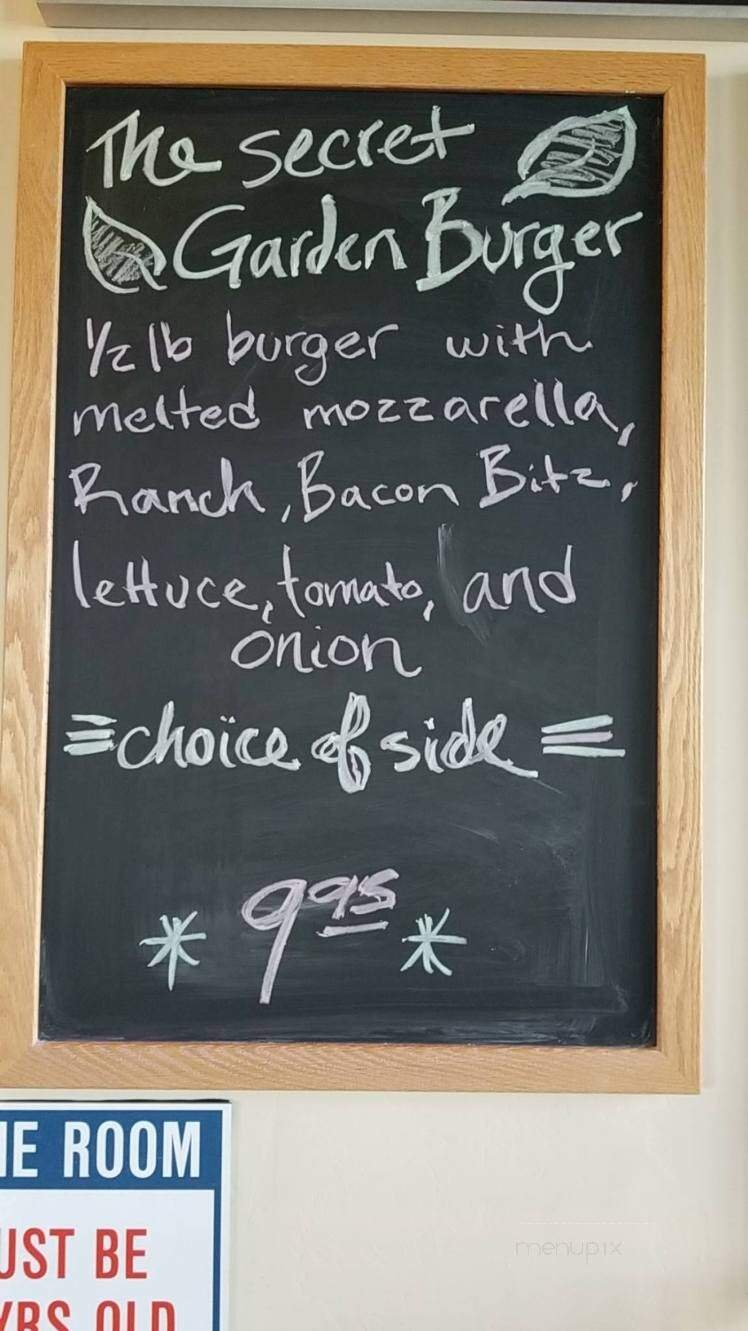 The secret
Garden Burger
1/2 lb burger with
melted mozzarella,
Ranch, Bacon Bitz,
lettuce, tomato, and
onion
=choice of side=
* 9.95 *
IE ROOM
UST BE
YRS OLD
menupix